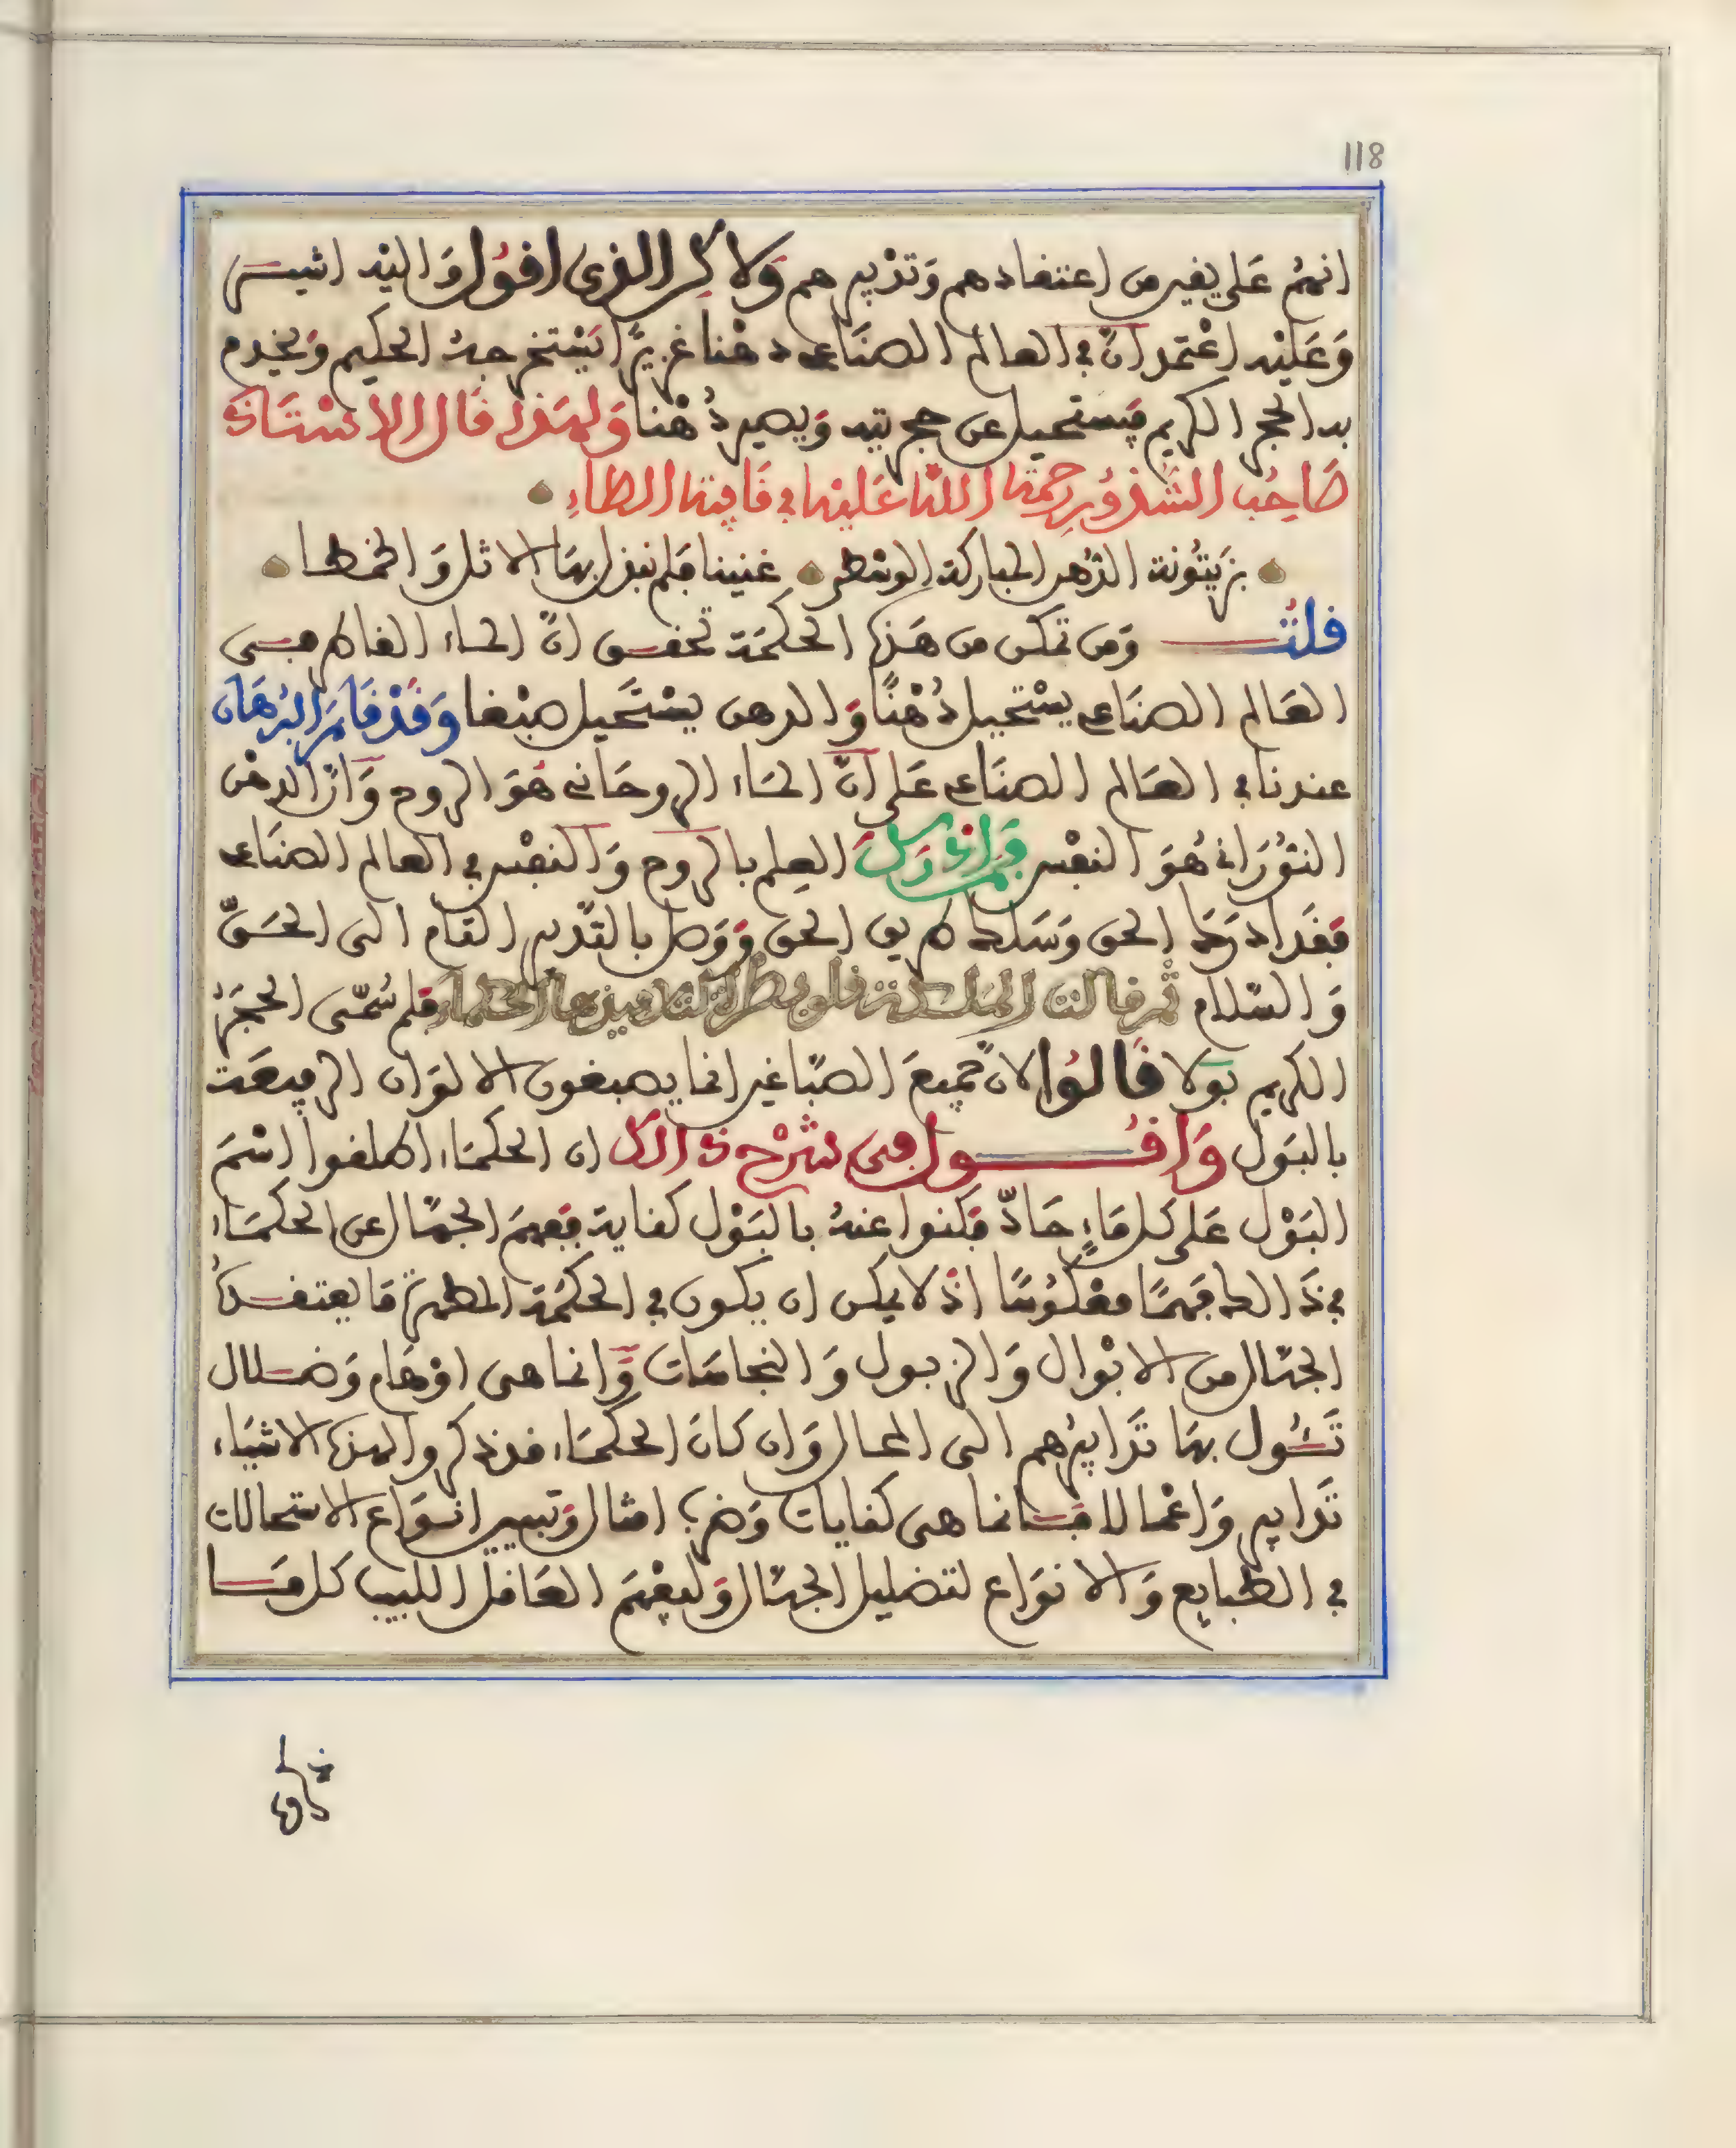 118
انهم على يقين من اعتقادهم وتدبيرهم ولاكن الذى اقول واليه اشيـر
وعليه اعتمد ان في العالم الصناعى دهنا غزيرا يستخرجه الحكيم ويخدم
به الحجر الكريم فيستحيل عن حجريته ويصير دُهْنا ولهذا قال الاستاذ
صاحب الشذور رحمة الله عليه في قافية الطاءِ
بزيتونة الدهن المباركة الوسطى غنينا فلم نبذل بها الاثل والخمطا
قلت ومن تمكن من هذه الحكمة تحقق انّ الماء القاطر فى
العالم الصناعى يستحيل دُهْنًا والدهن يستحيل صبْغا وقد قام البرهان
عندنا في العالم الصناعى على انّ الماء الروحانى هو الروح وانّ الدهن
النورانى هو النفس فمن ادرك العلم بالروح والنفس في العالم الصناعى
فقد ادرك الحق وسلك طريق الحق ووصل بالتدبير التام الى الحق
والسلام ثم قالت الملكة قلوبطرة لتلاميذها الحكماء فلم سُمّى الحجر
الكريم بولا قالوا لانّ جميع الصبّاغين انما يصبغون الالوان الرفيعة
بالبول واقول فى شرح ذالك ان الحكماء اطلقوا اسم
البَوْل على كل ماءٍ حادّ فكنوا عنه بالبَوْل كناية ففهم الجهّال عن الحكماء
في ذالك فهمًا معكوسًا اذ لا يمكن ان يكون في الحكمة المطهرة ما يعتقده
الجهال من الابْوال والزبول والنجاسات وانما هى اوْهام وضلال
تَئُول بها تدابيرهم الى المحال وان كان الحكماء قد ذكروا لهذه الاشياء
تدابير واعْمالا فانما هى كنايات وضرب امثال وتبيين انواع الاستحالات
في الطبايع والانواع لتضليل الجهال وليفهم العاقل اللبيب كل ما